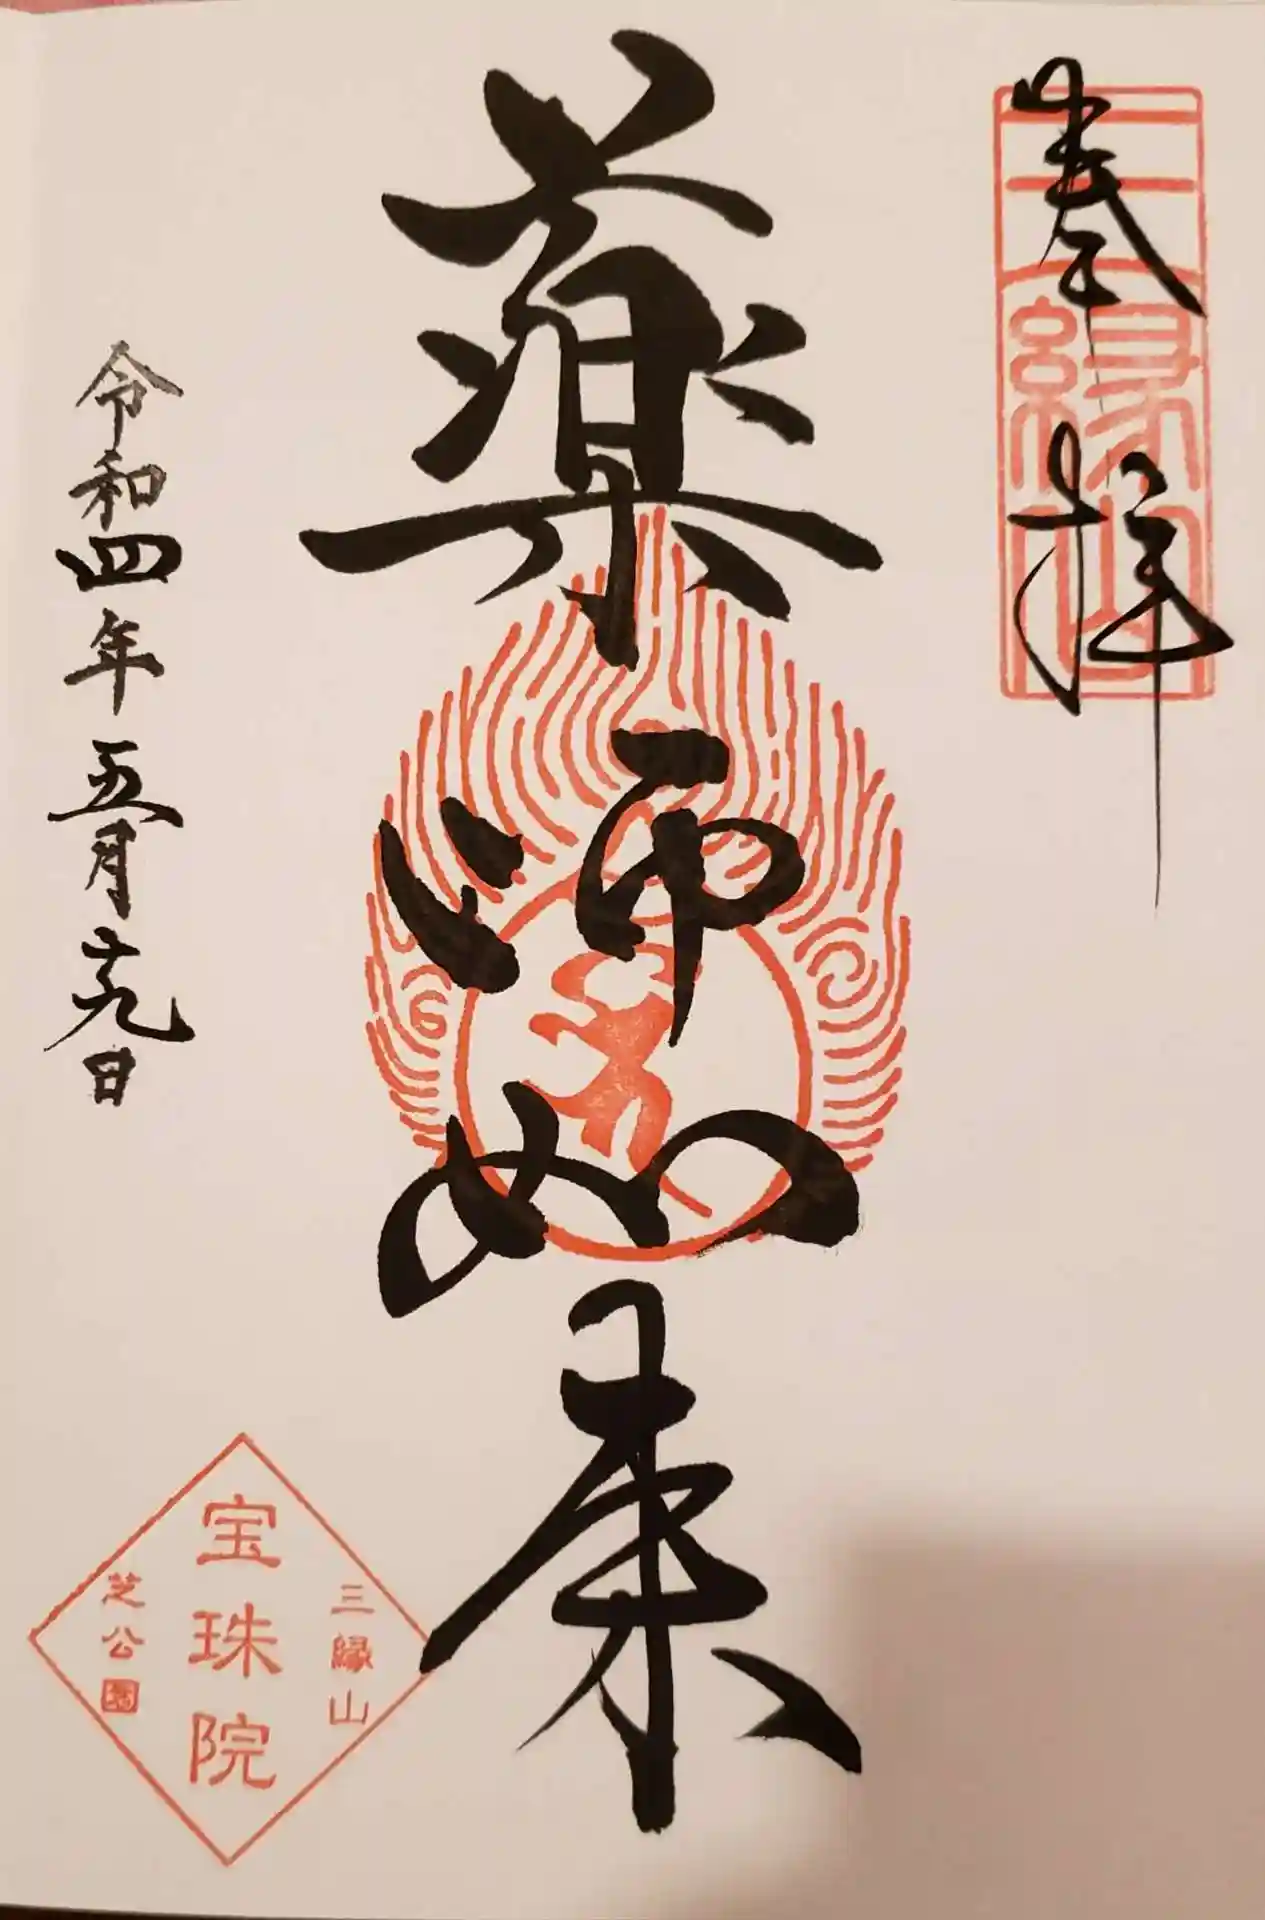 奉拝
三縁山
薬師如来
令和四年五月十九日
三縁山
宝珠院
芝公園